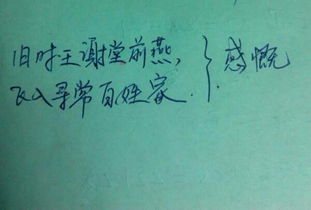 旧时王谢堂前燕,
飞入寻常百姓家.
感慨